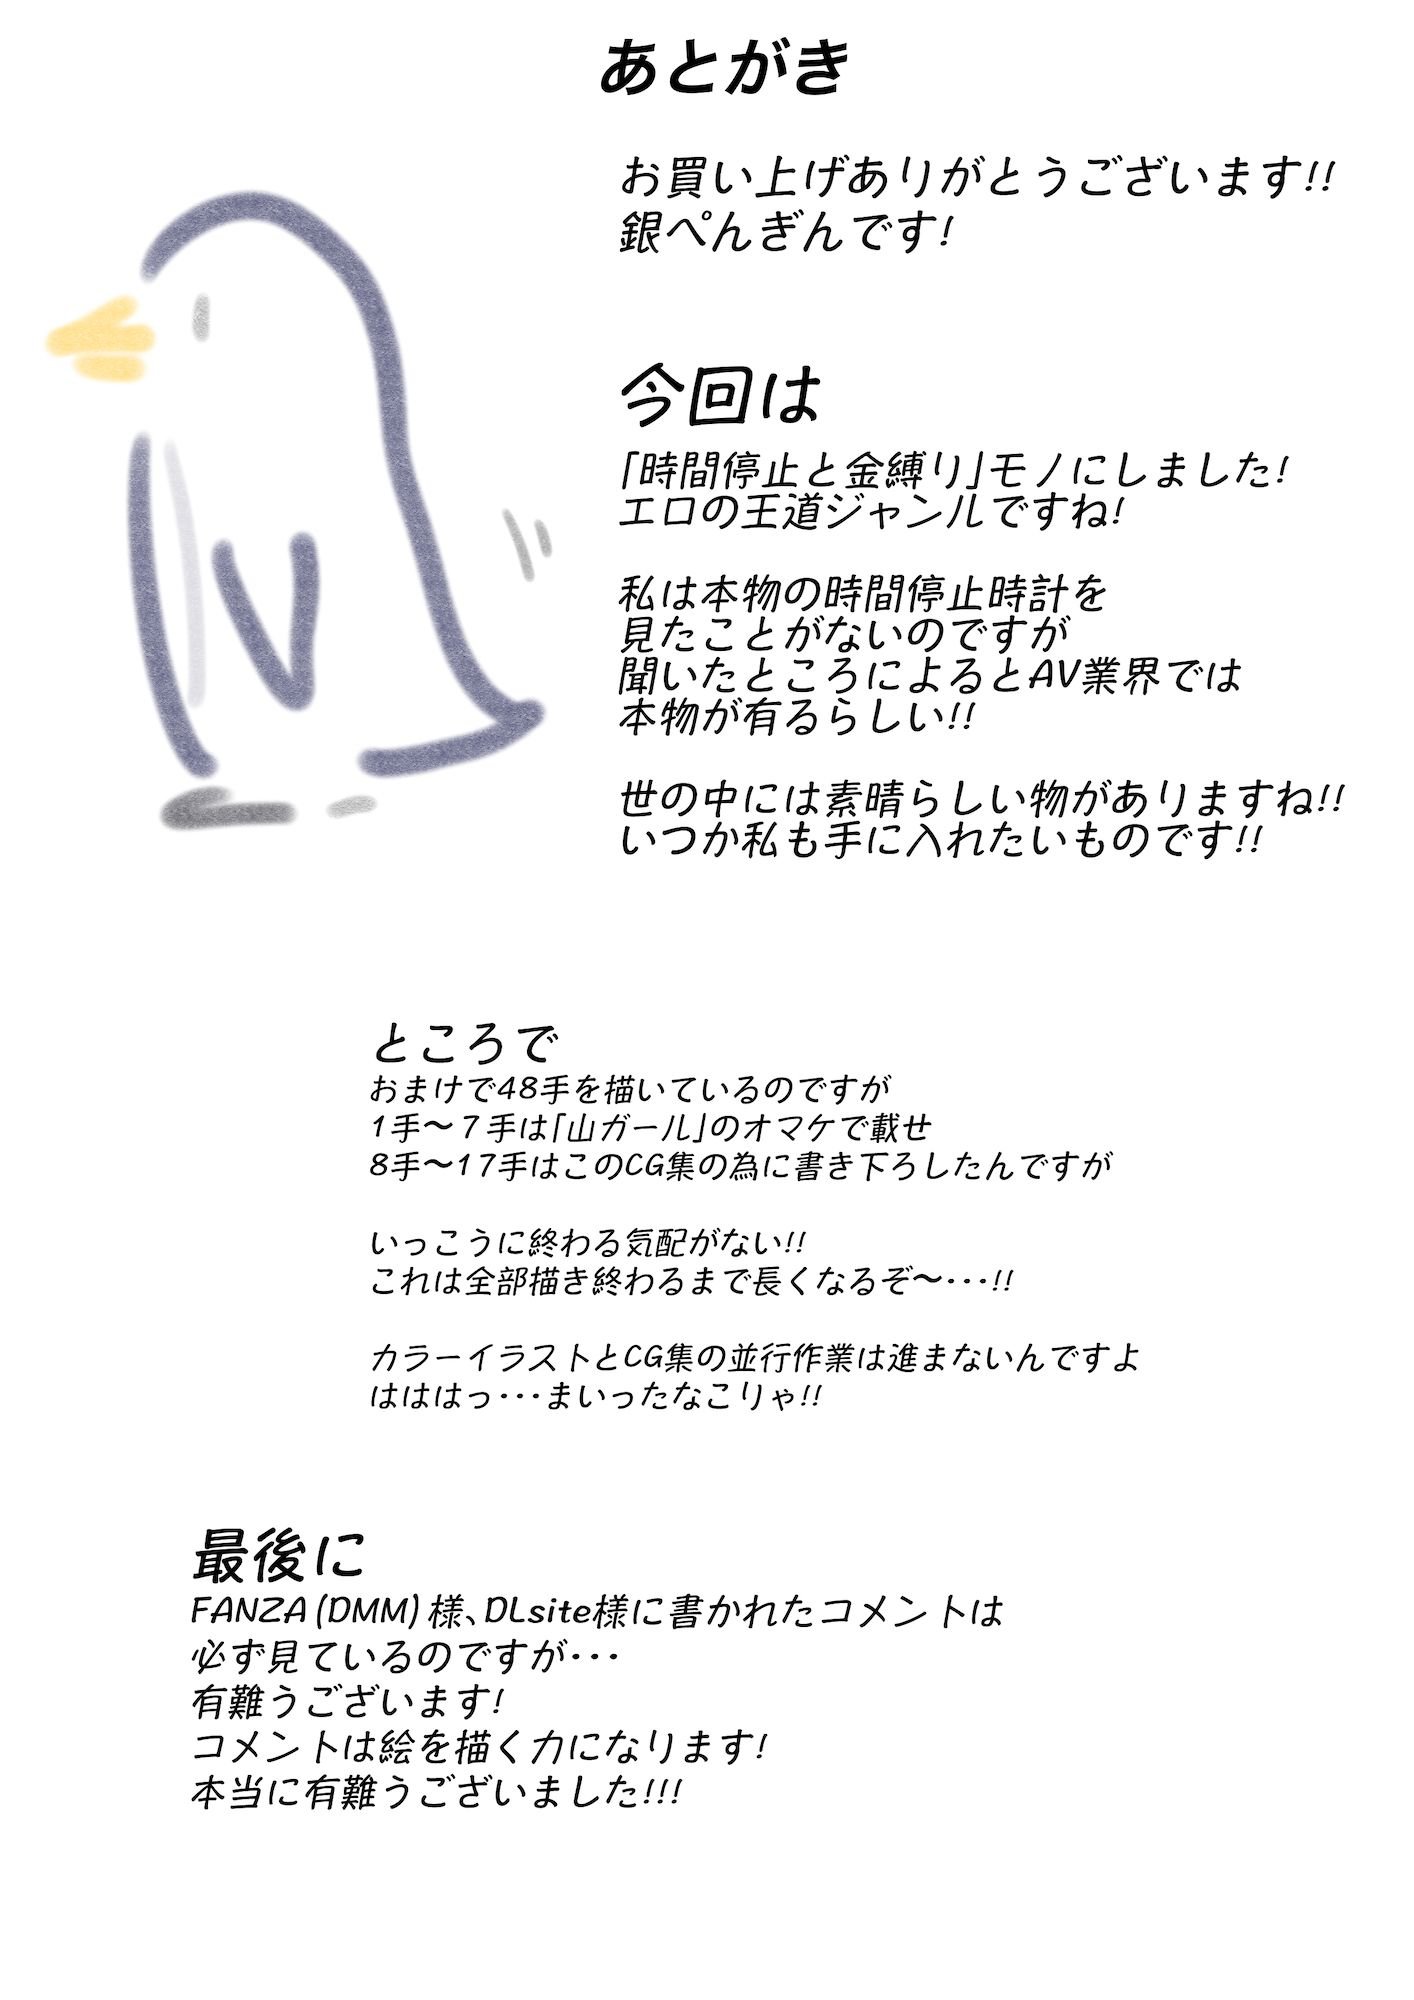 あとがき
お買い上げありがとうございます!!
銀ぺんぎんです!
今回は
「時間停止と金縛り」モノにしました!
エロの王道ジャンルですね!
私は本物の時間停止時計を
見たことがないのですが
聞いたところによるとAV業界では
本物が有るらしい!!
世の中には素晴らしい物がありますね!!
いつか私も手に入れたいものです!!
ところで
おまけで48手を描いているのですが
1手～7手は「山ガール」のオマケで載せ
8手～17手はこのCG集の為に書き下ろしたんですが
いっこうに終わる気配がない!!
これは全部描き終わるまで長くなるぞ～・・・!!
カラーイラストとCG集の並行作業は進まないんですよ
はははっ・・・まいったなこりゃ!!
最後に
FANZA(DMM)様、DLsite様に書かれたコメントは
必ず見ているのですが・・・
有難うございます!
コメントは絵を描く力になります!
本当に有難うございました!!!